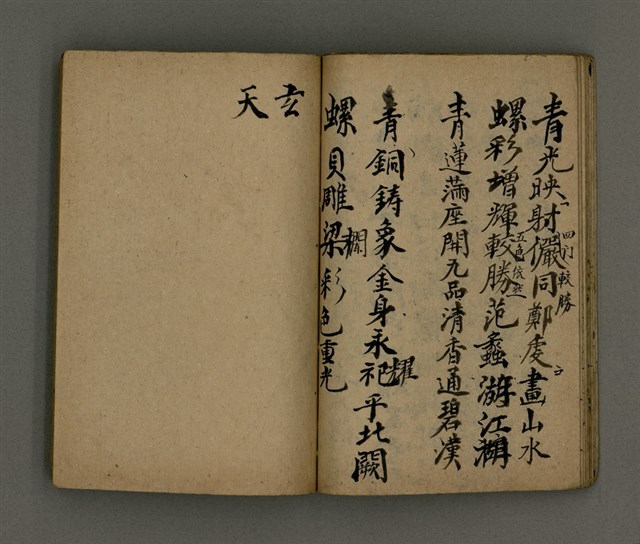 青光映射儼同鄭虔畫山水
四门較勝
螺彩增輝較勝范蠡游江湖
五色依然
青蓮滿座開九品清香通碧漢
青銅鋳象金身永祀乎北闕
耀
螺貝雕梁彩色重光
玄
天